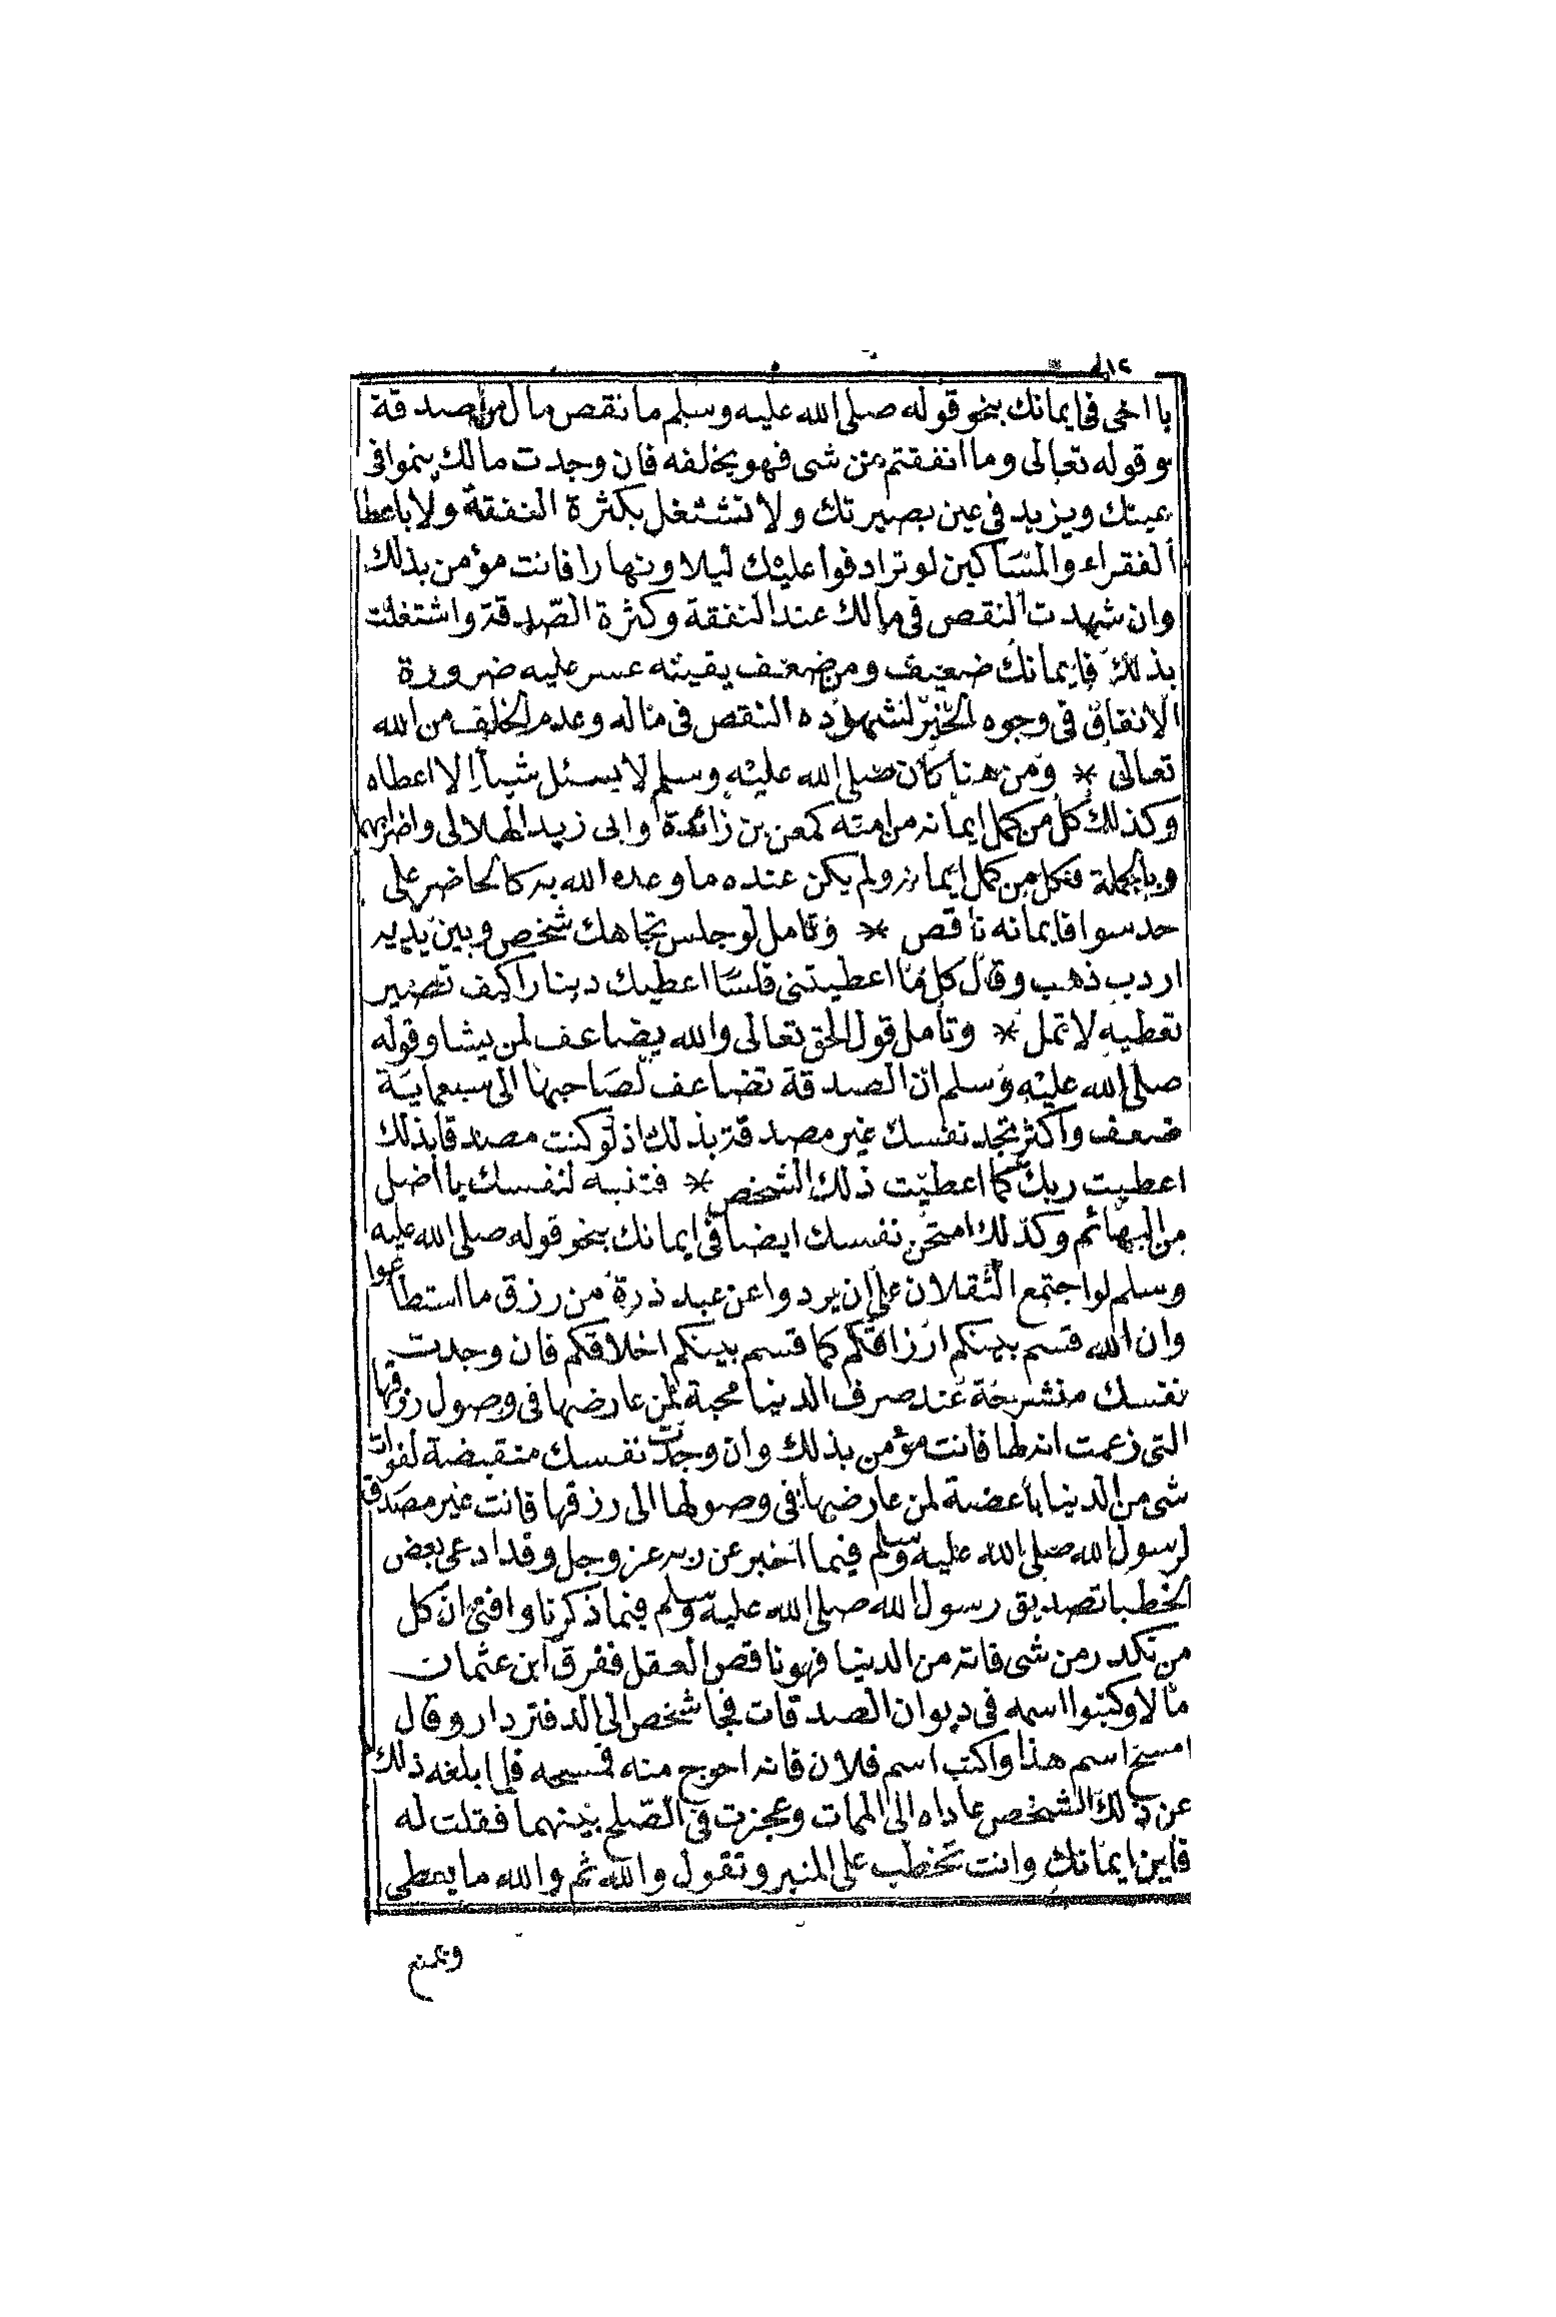 يا اخي في ايمانك بنحو قوله صلى الله عليه وسلم ما نقص مال من صدقة
وقوله تعالى وما انفقتم من شى فهو يخلفه فان وجدت مالك ينموا في
عينك ويزيد في عين بصيرتك ولا تشتغل بكثرة النفقة ولا باعطا
الفقراء والمساكين لو ترادفوا عليك ليلا ونهارا فانت مؤمن بذلك
وان شهدت النقص في مالك عند النفقة وكثرة الصدقة واشتغلت
بذلك فايمانك ضعيف ومن ضعف يقينه عسر عليه ضرورة
الانفاق في وجوه الخير لشهوده النقص في ماله وعدم الخلف من الله
تعالى * ومن هنا كان صلى الله عليه وسلم لا يسئل شيأ الا اعطاه
وكذلك كل من كمل ايمانه من امته كمعن بن زائدة وابى زيد الهلالى واضرابهم
وبالجملة فكل من كمل ايمانه ولم يكن عنده ما وعده الله به كالحاضر على
حد سوا فايمانه ناقص * وتامل لو جلس تجاهك شخص وبين يديه
اردب ذهب وقال كل ما اعطيتنى فلسا اعطيك دينارا كيف تصير
تعطيه لا تمل * وتامل قول الحق تعالى والله يضاعف لمن يشا وقوله
صلى الله عليه وسلم ان الصدقة تضاعف لصاحبها الى سبعماية
ضعف واكثر تجد نفسك غير مصدقة بذلك اذ لو كنت مصدقا بذلك
اعطيت ربك كما اعطيت ذلك الشخص * فتنبه لنفسك يا اضل
من البهائم وكذلك امتحن نفسك ايضا في ايمانك بنحو قوله صلى الله عليه
وسلم لو اجتمع الثقلان على ان يردوا عن عبد ذرة من رزق ما استطاعوا
وان الله قسم بينكم ارزاقكم كما قسم بينكم اخلاقكم فان وجدت
نفسك منشرحة عند صرف الدنيا محبة لمن عارضها في وصول رزقها
التى زعمت انه لها فانت مؤمن بذلك وان وجدت نفسك منقبضة لفوات
شى من الدنيا باغضة لمن عارضها في وصولها الى رزقها فانت غير مصدق
لرسول الله صلى الله عليه وسلم فيما اخبر عن ربه عز وجل وقد ادعى بعض
الخطبا تصديق رسول الله صلى الله عليه وسلم فيما ذكرنا وافتى ان كل
من تكدر من شى فاته من الدنيا فهو ناقص العقل ففرق ابن عثمان
مالا وكتبوا اسمه في ديوان الصدقات فجا شخص الى الدفتردار وقال
امسح اسم هذا واكتب اسم فلان فانه احوج منه فمسحه فلما بلغه ذلك
عن ذلك الشخص عاداه الى الممات وعجزت في الصلح بينهما فقلت له
فاين ايمانك وانت تخطب على المنبر وتقول والله ثم والله ما يعطى
ويمنع